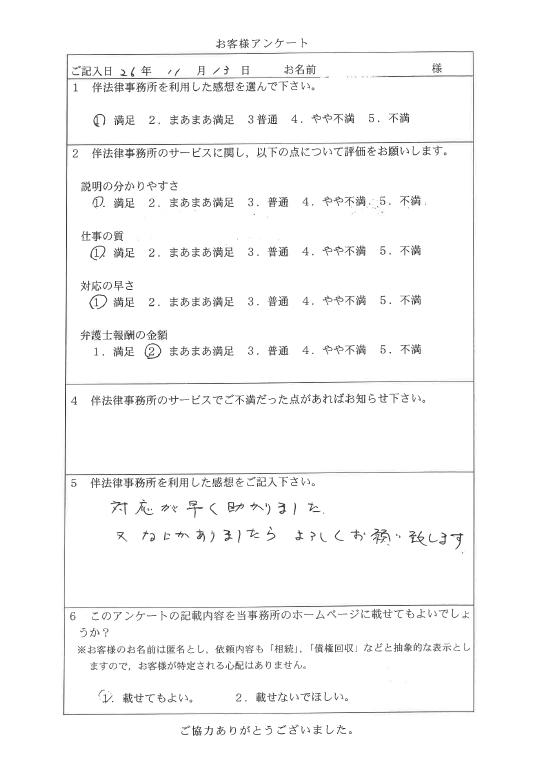 お客様アンケート
ご記入日 26年 11 月 13 日 お名前 様
1 伴法律事務所を利用した感想を選んで下さい。
1. 満足 2.まあまあ満足 3普通 4.やや不満 5.不満
2 伴法律事務所のサービスに関し,以下の点について評価をお願いします。
説明の分かりやすさ
1. 満足 2.まあまあ満足 3.普通 4.やや不満 5.不満
仕事の質
1. 満足 2.まあまあ満足 3.普通 4.やや不満 5.不満
対応の早さ
1 満足 2.まあまあ満足 3.普通 4.やや不満 5.不満
弁護士報酬の金額
1.満足 2 まあまあ満足 3.普通 4.やや不満 5.不満
4 伴法律事務所のサービスでご不満だった点があればお知らせ下さい。
5 伴法律事務所を利用した感想をご記入下さい。
対応が早く助かりました.
又 なにかありましたら よろしくお願い致します
6 このアンケートの記載内容を当事務所のホームページに載せてもよいでしょ
うか?
※お客様のお名前は匿名とし,依頼内容も「相続」,「債権回収」などと抽象的な表示とし
ますので,お客様が特定される心配はありません。
1. 載せてもよい。 2.載せないでほしい。
ご協力ありがとうございました。